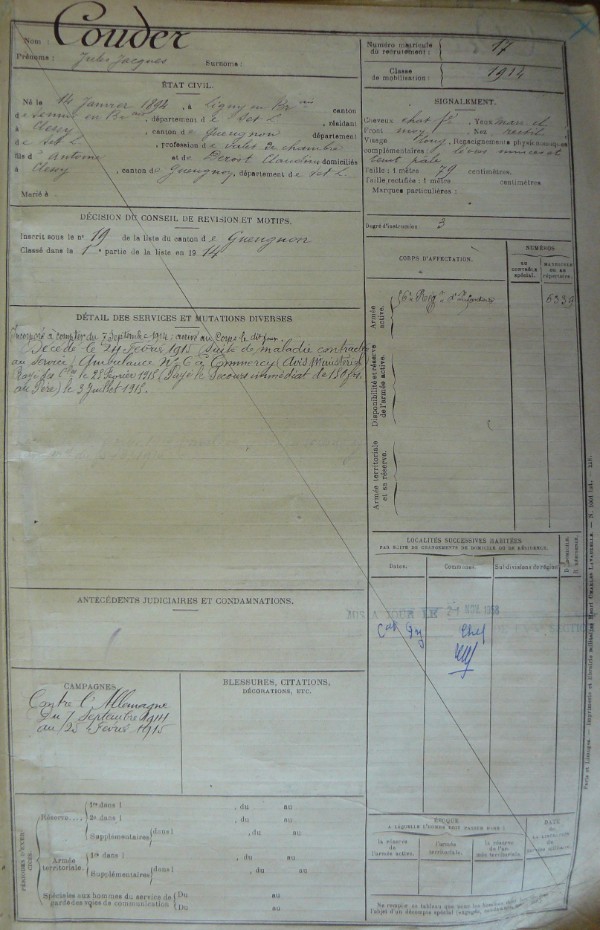 Nom : Couder
Prénoms : Jules Jacques Surnoms :
Numéro matricule du recrutement : 17
Classe de mobilisation : 1914
ÉTAT CIVIL.
Né le 14 Janvier 1894, à Ligny en Br ais canton
de Semur en Br ais, département de Set L., résidant
à Clessy, canton de Gueugnon département
de Set L, profession de Valet de chambre
fils d'Antoine et de Benoit Claudine domiciliés
à Clessy, canton de Gueugnon, département de Set L.
Marié à
SIGNALEMENT.
Cheveux chat fé. Yeux mar
Front moy. Nez rectil
Visage long. Renseignements physionomiques
complémentaires : lèvres minces et
teint pâle
Taille : 1 mètre 79 centimètres.
Taille rectifiée : 1 mètre centimètres.
Marques particulières :
DÉCISION DU CONSEIL DE REVISION ET MOTIFS.
Inscrit sous le n° 19 de la liste du canton de Gueugnon
Classé dans la 1re partie de la liste en 1914
Degré d'instruction : 3
DÉTAIL DES SERVICES ET MUTATIONS DIVERSES.
Incorporé à compter du 7 Septembre 1914, arrivé au Corps le dit jour.
Décédé le 24 février 1915 (suite de maladie contractée
au service) Ambulance N° 6 à Commercy (avis Ministériel
le 25 Février 1915 (Payé le secours immédiat de 150 frs
au Père) le 3 Juillet 1915.
CORPS D'AFFECTATION.
NUMÉROS
au contrôle spécial.
matricule ou au répertoire.
Armée active.
Rég d'Infanterie
Disponibilité et réserve de l'armée active.
Armée territoriale et sa réserve.
LOCALITÉS SUCCESSIVES HABITÉES
PAR SUITE DE CHANGEMENTS DE DOMICILE OU DE RÉSIDENCE.
Dates. Communes. Subdivisions de région. D. domicile. R. résidence.
MIS A JOUR LE
ANTÉCÉDENTS JUDICIAIRES ET CONDAMNATIONS.
CAMPAGNES.
Contre l'Allemagne
du 7 Septembre 1914
au 25 Février 1915
BLESSURES, CITATIONS,
DÉCORATIONS, ETC.
PÉRIODES D'EXERCICES.
Réserve.... 1re dans l , du au
2e dans l , du au
Supplémentaires dans l , du au
, du au
Armée territoriale. 1re dans l , du au
Supplémentaires dans l , du au
, du au
Spéciales aux hommes du service de garde des voies de communication Du au
Du au
ÉPOQUE
A LAQUELLE L'HOMME DOIT PASSER DANS :
la réserve de l'armée active. l'armée territoriale. la réserve de l'armée territoriale.
DATE
Paris et Limoges. — Imprimerie et librairie militaires Henri CHARLES-LAVAUZELLE